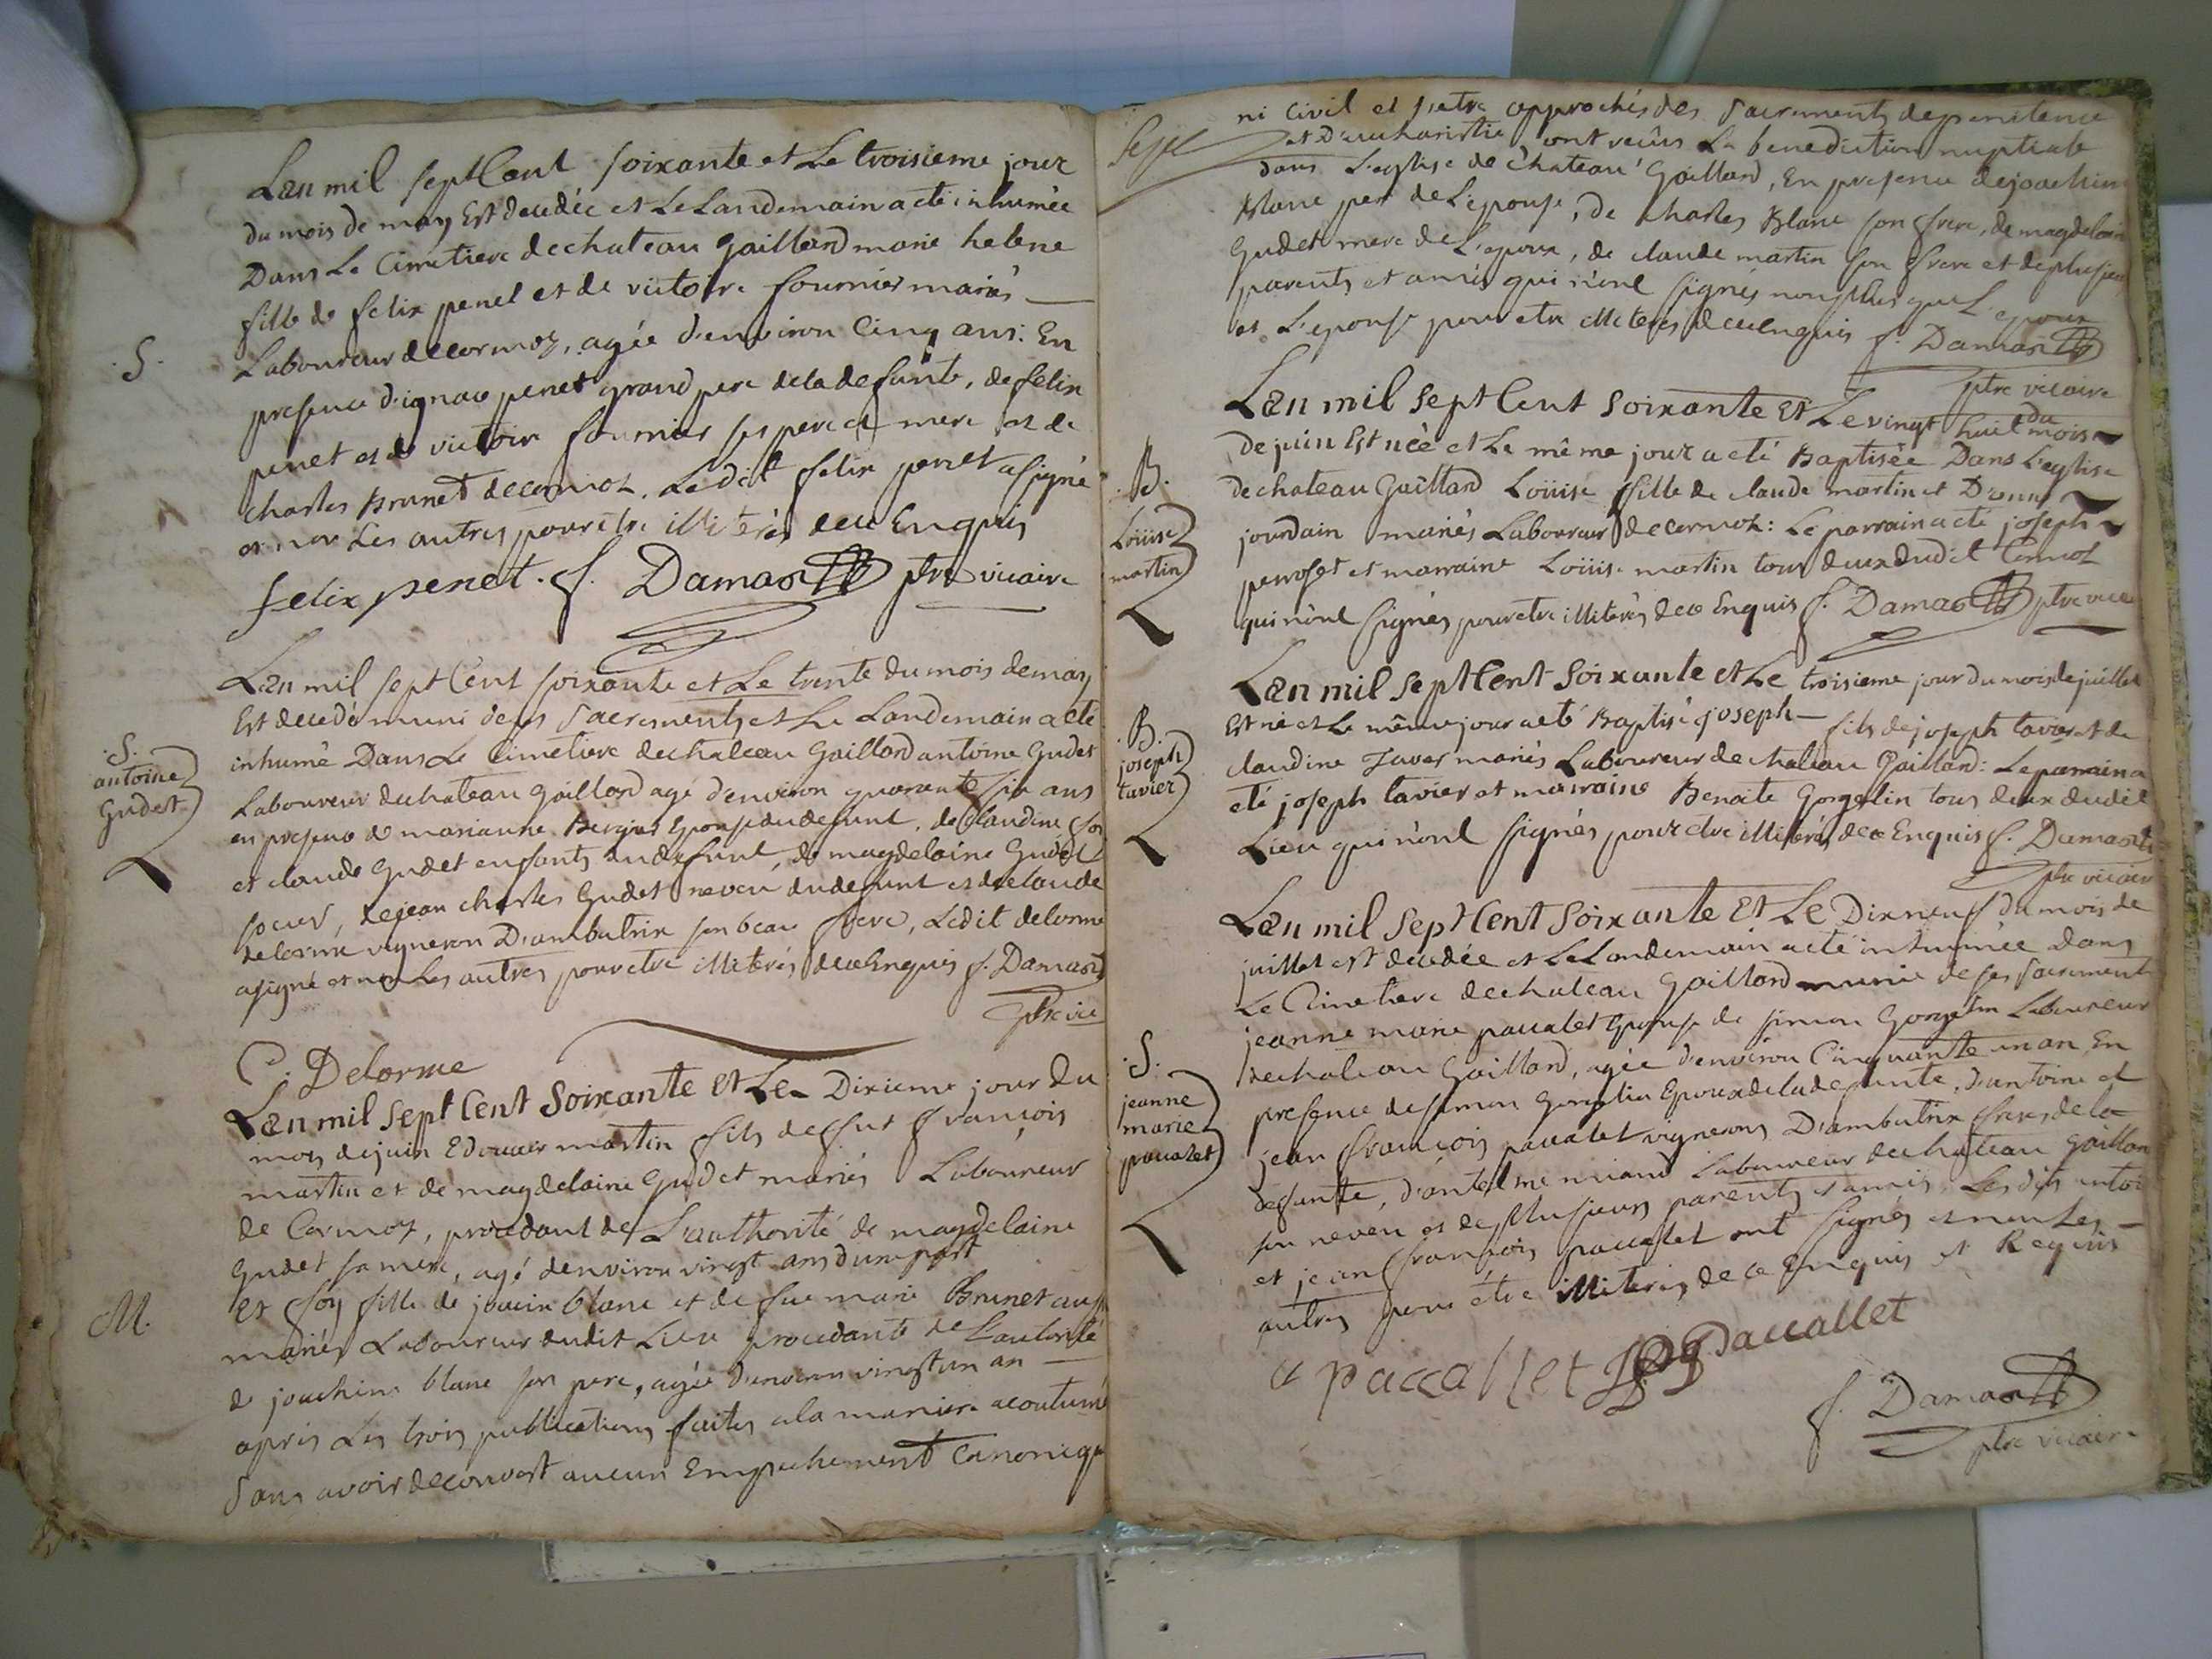 Lan mil sept Cent soixante et Le troisieme jour
du mois de may Est decedée et Le Landemain a eté inhumée
Dans Le Cimetiere de chateau Gaillard marie helene
fille de felix penet et de victoire fournier mariés
S.
Laboureur de cormoz, agée d'environ Cinq ans: En
presence d'ignace penet grand pere de la defunte, de felix
penet et de victoire fournier ses pere et mere et de
charles Brunet de cormoz. Ledit felix penet a signé
et non Les autres pour etre illiterés de ce Enquis
felix penet. f. Damas ptre vicaire
Lan mil sept Cent soixante et Le trente du mois de may
Est decedé muni de ses sacrements et Le Landemain a eté
inhumé Dans Le Cimetiere de chateau Gaillard antoine Gudet
S.
antoine
Gudet
Laboureur de chateau Gaillard agé d'environ quarante six ans
en presence de marianne Epouse du defunt, de claudine
et claude Gudet enfants du defunt, de magdelaine Gudet
soeur, de jean charles Gudet neveu du defunt et de claude
delorme vigneron D'ambutrix son beau frere, Ledit delorme
a signé et non Les autres pour etre illiterés de ce Enquis f. Damas
ptre vic
C. j. Delorme
Lan mil sept Cent Soixante et Le Dixieme jour du
mois de juin Edouar martin fils de fut françois
martin et de magdelaine Gudet mariés Laboureur
de Cormoz, procedant de L'authorité de magdelaine
Gudet sa mere, agé d'environ vingt ans d'une part
M.
Et foy fille de joacin blanc et de fue marie Brunet aussi
mariés Laboureur dudit Lieu procedante de Lautorité
de joachim blanc son pere, agée d'environ vingt un an
apris Les trois publications faites a la maniere acoutumé
Sans avoir decouvert aucun Empechement Canonique
ni Civil et s'etre approchés des Sacrements de penitence
et D'eucharistie ont reçûs La benediction nuptiale
dans L'eglise de Chateau Gaillard, En presence de joachim
Blanc pere de L'epouse, de charles Blanc son frere, de magdelaine
Gudet mere de L'epoux, de claude martin son frere et de plusieurs
parents et amis qui n'ont signés non plus que L'epoux
et L'epouse pour etre illiterés de ce Enquis f. Damas
ptre vicaire
Lan mil sept Cent soixante Et Le vingt huit du mois
de juin Est née et Le même jour a eté Baptisée Dans L'eglise
B.
Loüise
martin
de chateau Gaillard Loüise fille de claude martin et D'anne
jourdain mariés Laboureur de cormoz: Le parrain a eté joseph
perroset et marraine Loüise martin tous deux dudit Cormoz
qui n'ont signés pour etre illiterés de ce Enquis f. Damas ptre vicai
Lan mil sept Cent Soixante et Le troisieme jour du mois de juillet
Est né et Le même jour a eté Baptisé joseph fils de joseph tavier et de
B.
joseph
tavier
claudine mariés Laboureur de chateau Gaillard: Le parrain a
eté joseph tavier et marraine Benoite Gorgelin tous deux dudit
Lieu qui n'ont signés pour etre illiterés de ce Enquis f. Damas
ptre vicair
Lan mil Sept Cent Soixante Et Le Dixneuf du mois de
juillet est decedée et Le Landemain a eté inhumée Dans
Le Cimetiere de chateau Gaillard munie de ses sacrement
jeanne marie paucalet Epouse de simon Gorgelin Laboureur
S.
jeanne
marie
paucalet
de chateau Gaillard, agée d'environ Cinquante un an En
presence de simon Gorgelin Epoux de la defunte, d'antoine et
jean françois paucalet vignerons D'ambutrix freres de la
defunte, d'antelme niand Laboureur de chateau Gaillar
son neveu et de plusieurs parents et amis. Les dits antoi
et jean françois paucalet ont signés et non Les
autres pour être illiterés de ce Enquis et Requis
a paccallet paccallet
f. Damas
ptre vicaire